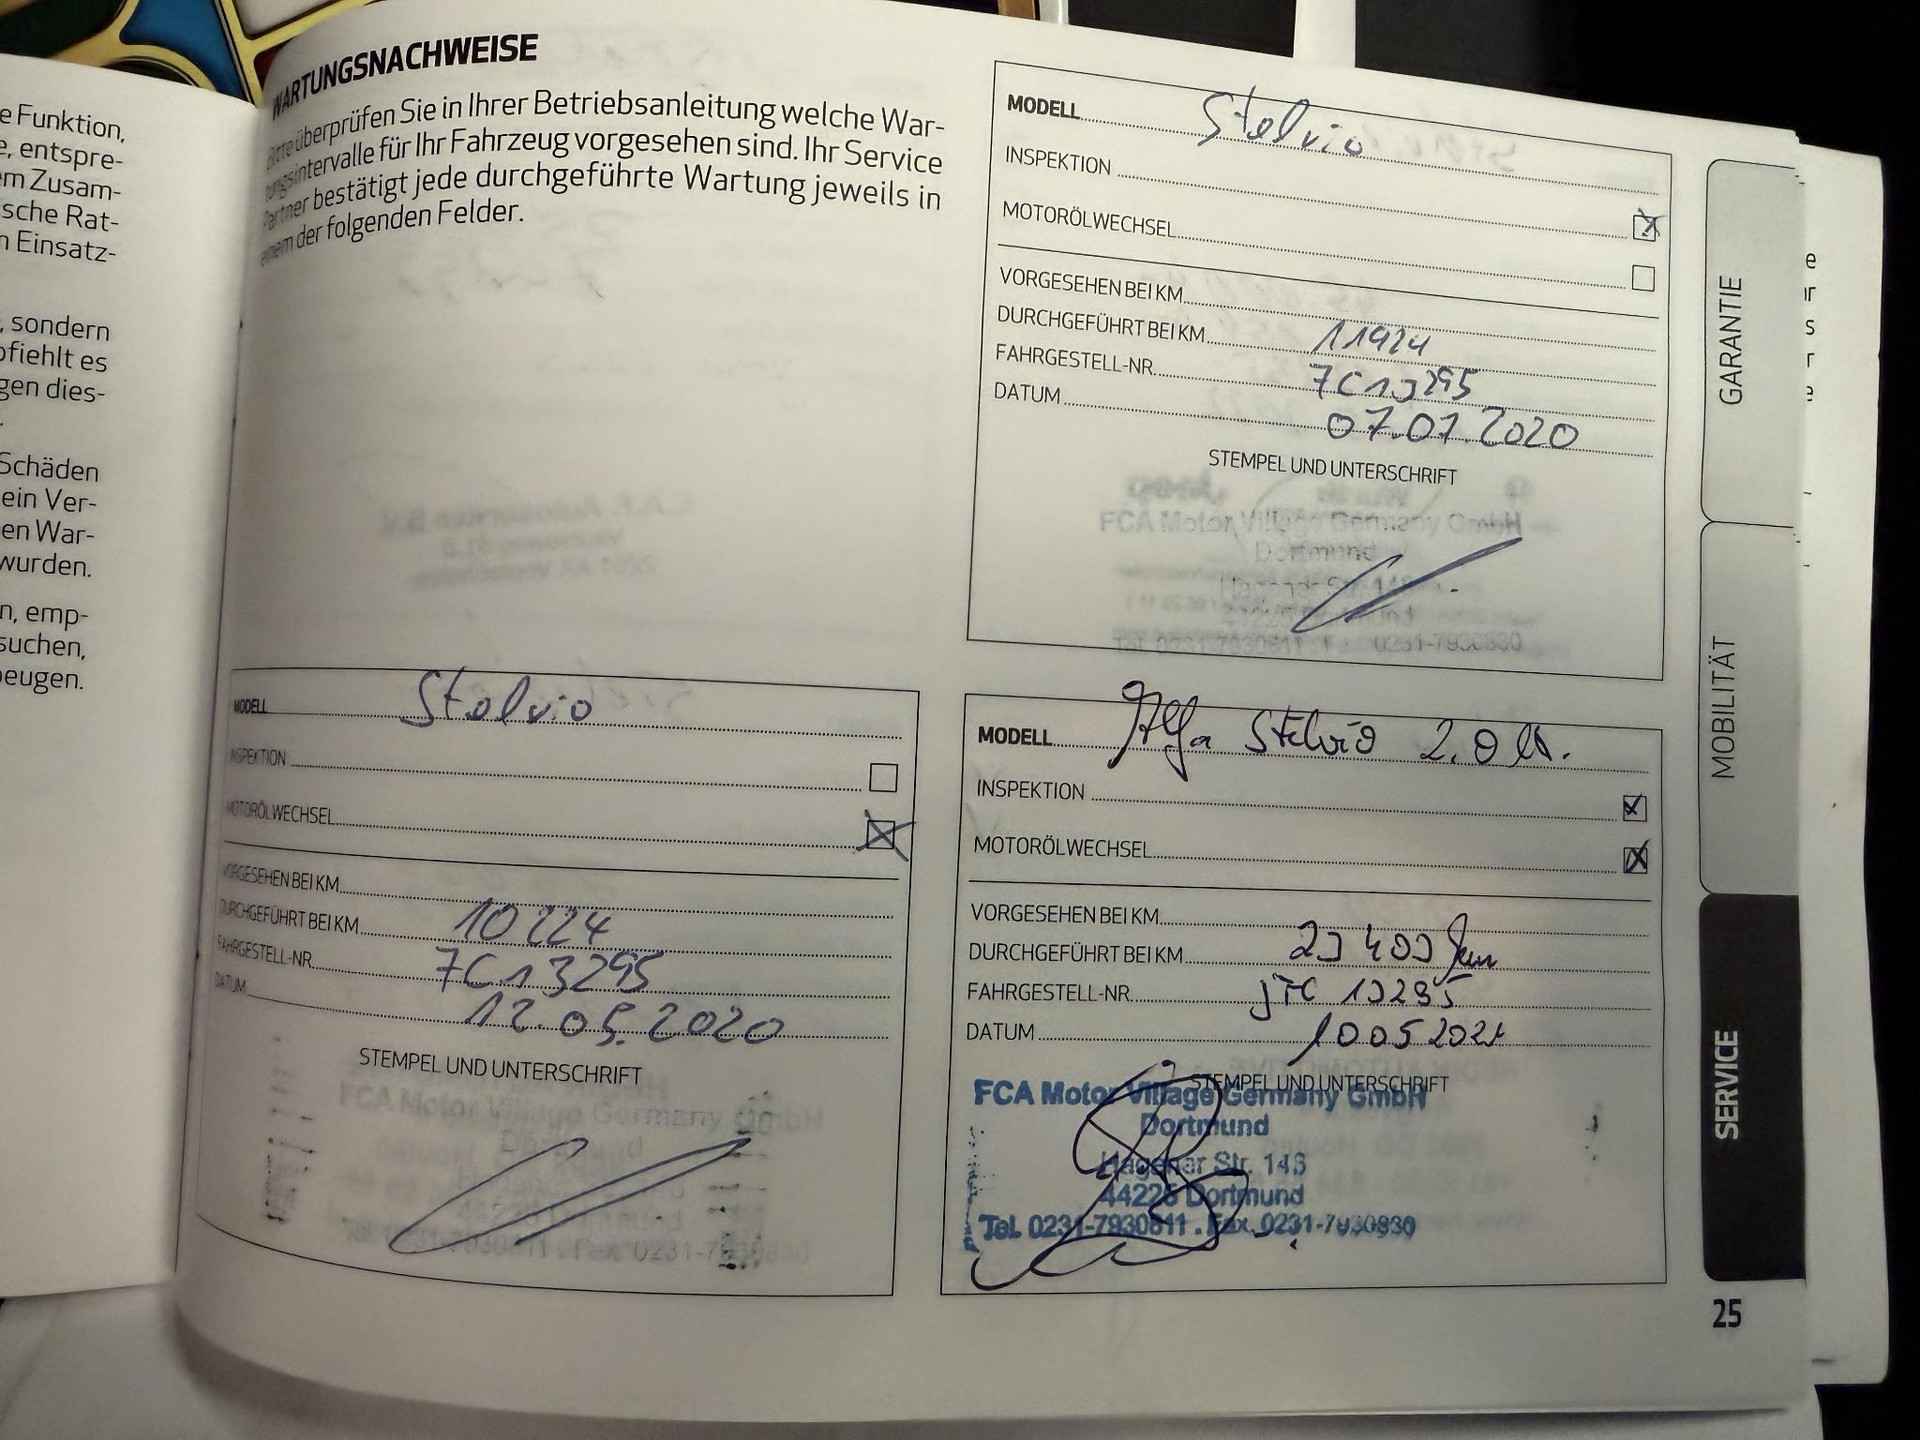 e Funktion,
e, entspre-
em Zusam-
sche Rat-
n Einsatz-
, sondern
pfiehlt es
gen dies-
Schäden
ein Ver-
en War-
wurden.
n, emp-
suchen,
beugen.
WARTUNGSNACHWEISE
Bitte überprüfen Sie in Ihrer Betriebsanleitung welche War-
tungsintervalle für Ihr Fahrzeug vorgesehen sind. Ihr Service
Partner bestätigt jede durchgeführte Wartung jeweils in
einem der folgenden Felder.
MODELL Stelvio
INSPEKTION
MOTORÖLWECHSEL
VORGESEHEN BEI KM
DURCHGEFÜHRT BEI KM 11924
FAHRGESTELL-NR. 7C13295
DATUM 07.01.2020
STEMPEL UND UNTERSCHRIFT
FCA Motor Village Germany GmbH
Dortmund
Tel. 0231-7930811 . Fax 0231-7930830
MODELL Stelvio
INSPEKTION
MOTORÖLWECHSEL
VORGESEHEN BEI KM
DURCHGEFÜHRT BEI KM 10224
FAHRGESTELL-NR. 7C13295
DATUM 12.05.2020
STEMPEL UND UNTERSCHRIFT
FCA Motor Village Germany GmbH
Dortmund
MODELL Alfa Stelvio 2.0
INSPEKTION
MOTORÖLWECHSEL
VORGESEHEN BEI KM
DURCHGEFÜHRT BEI KM 23403 km
FAHRGESTELL-NR. 13295
DATUM 10 05 2021
STEMPEL UND UNTERSCHRIFT
FCA Motor Village Germany GmbH
Dortmund
Hagener Str. 143
44225 Dortmund
Tel. 0231-7930811 . Fax 0231-7930830
GARANTIE
MOBILITÄT
SERVICE
25